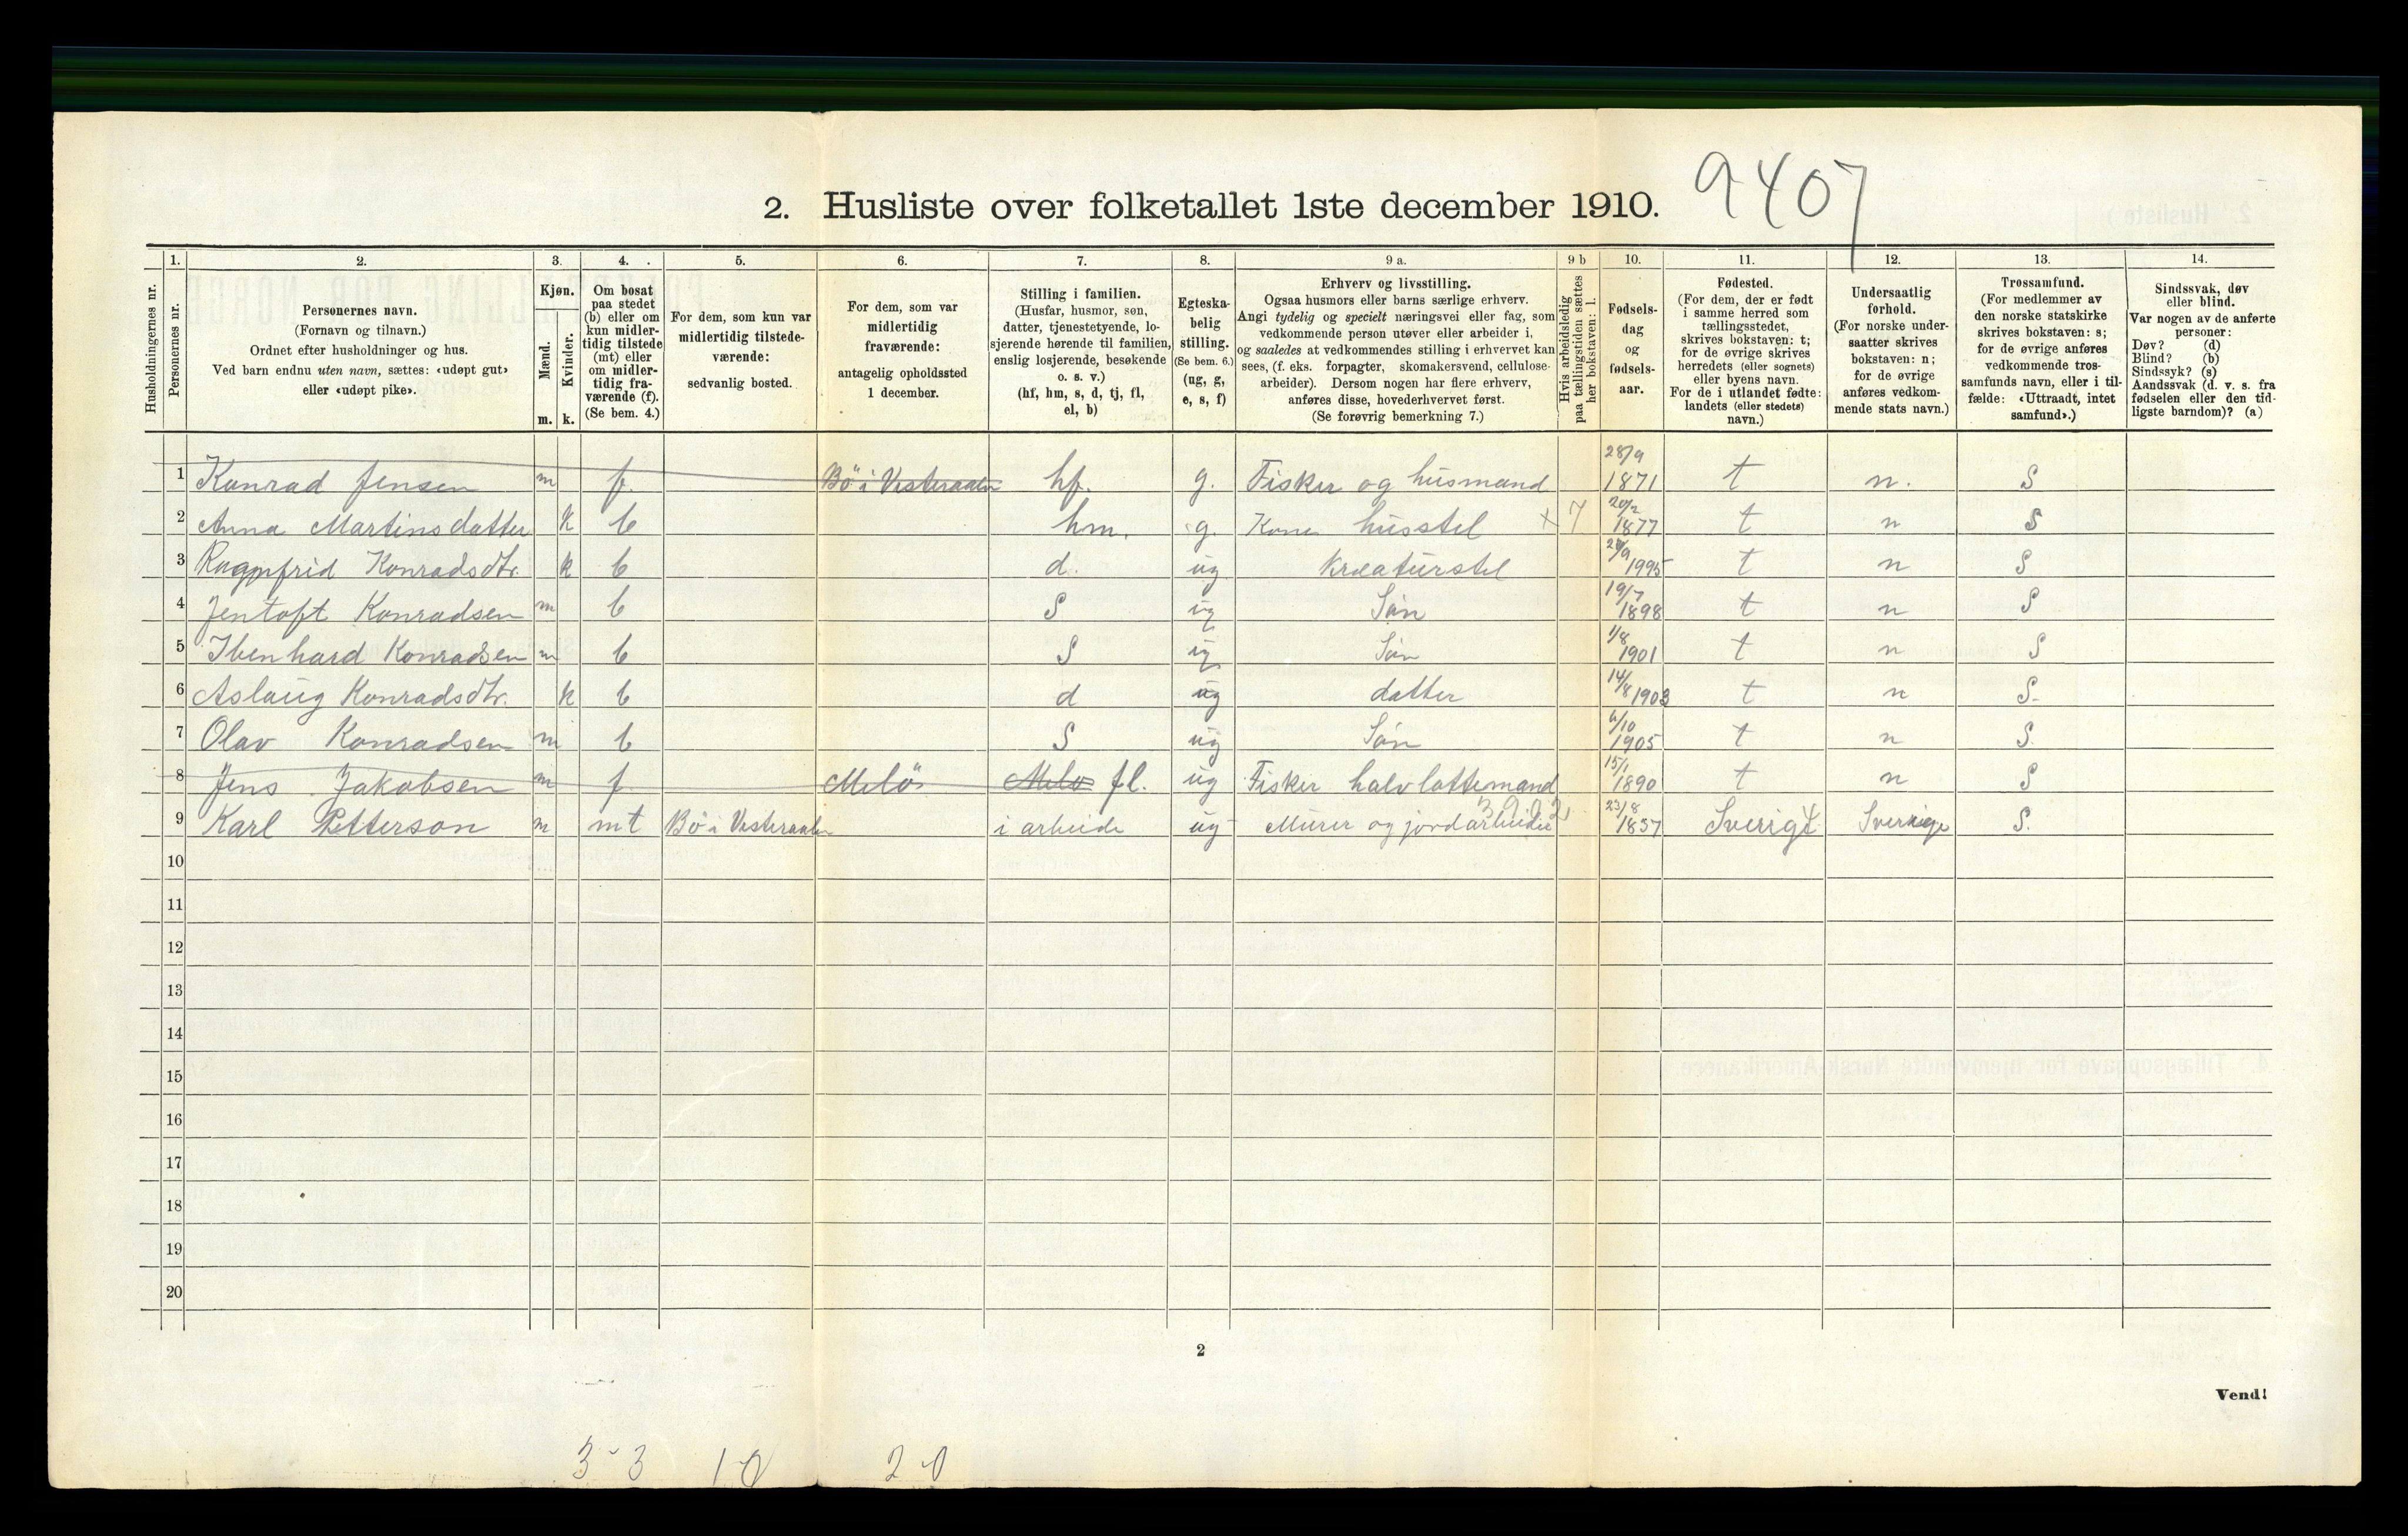 9407
2. Husliste over folketallet 1ste december 1910.
Husholdningernes nr.
1.
Personernes nr.
2.
Personernes navn.
(Fornavn og tilnavn.)
Ordnet efter husholdninger og hus.
Ved barn endnu uten navn, sættes: «udøpt gut»
eller «udøpt pike».
3.
Kjøn.
Mænd.
Kvinder.
m. k.
4.
Om bosat
paa stedet
(b) eller om
kun midler-
tidig tilstede
(mt) eller
om midler-
tidig fra-
værende (f).
(Se bem. 4.)
5.
For dem, som kun var
midlertidig tilstede-
værende:
sedvanlig bosted.
6.
For dem, som var
midlertidig
fraværende:
antagelig opholdssted
1 december.
7.
Stilling i familien.
(Husfar, husmor, søn,
datter, tjenestetyende, lo-
sjerende hørende til familien,
enslig losjerende, besøkende
o. s. v.)
(hf, hm, s, d, tj, fl,
el, b)
8.
Egteska-
belig
stilling.
(Se bem. 6.)
(ug, g,
e, s, f)
9 a.
Erhverv og livsstilling.
Ogsaa husmors eller barns særlige erhverv.
Angi tydelig og specielt næringsvei eller fag, som
vedkommende person utøver eller arbeider i,
og saaledes at vedkommendes stilling i erhvervet kan
sees, (f. eks. forpagter, skomakersvend, cellulose-
arbeider). Dersom nogen har flere erhverv,
anføres disse, hovederhvervet først.
(Se forøvrig bemerkning 7.)
9 b
Hvis arbeidsledig
paa tællingstiden sættes
her bokstaven: l.
10.
Fødsels-
dag
og
fødsels-
aar.
11.
Fødested.
(For dem, der er født
i samme herred som
tællingsstedet,
skrives bokstaven: t;
for de øvrige skrives
herredets (eller sognets)
eller byens navn.
For de i utlandet fødte:
landets (eller stedets)
navn.)
12.
Undersaatlig
forhold.
(For norske under-
saatter skrives
bokstaven: n;
for de øvrige
anføres vedkom-
mende stats navn.)
13.
Trossamfund.
(For medlemmer av
den norske statskirke
skrives bokstaven: s;
for de øvrige anføres
vedkommende tros-
samfunds navn, eller i til-
fælde: «Uttraadt, intet
samfund».)
14.
Sindssvak, døv
eller blind.
Var nogen av de anførte
personer:
Døv? (d)
Blind? (b)
Sindssyk? (s)
Aandssvak (d. v. s. fra
fødselen eller den tid-
ligste barndom)? (a)
1 Konrad Jensen m f. Bö i Vesteraalen hf. g. Fisker og husmand 28/9 1871 t n. S
2 Anna Martinsdatter k b hm. g. Kone husstel x 7 20/2 1877 t n S
3 Ragnfrid Konradsdtr. k b d. ug Kreaturstel 1995 t n S
4 Jentoft Konradsen m b S ug Sön 19/7 1898 t n S
5 Ibenhard Konradsen m b S ug Sön 1/8 1901 t n S
6 Aslaug Konradsdtr. k b d ug datter 14/8 1903 t n S.
7 Olav Konradsen m b S ug Sön 6/10 1905 t n S.
8 Jens Jakobsen m f Melö Melö fl. ug Fisker halvlottemand 15/1 1890 t n S
9 Karl Petterson m mt Bö i Vesteraalen i arbeide ug Murer og jordarbeider 23/8 1857 Sverige Sverige S.
10
11
12
13
14
15
16
17
18
19
20
2
Vend!
3-3 1-0 2-0